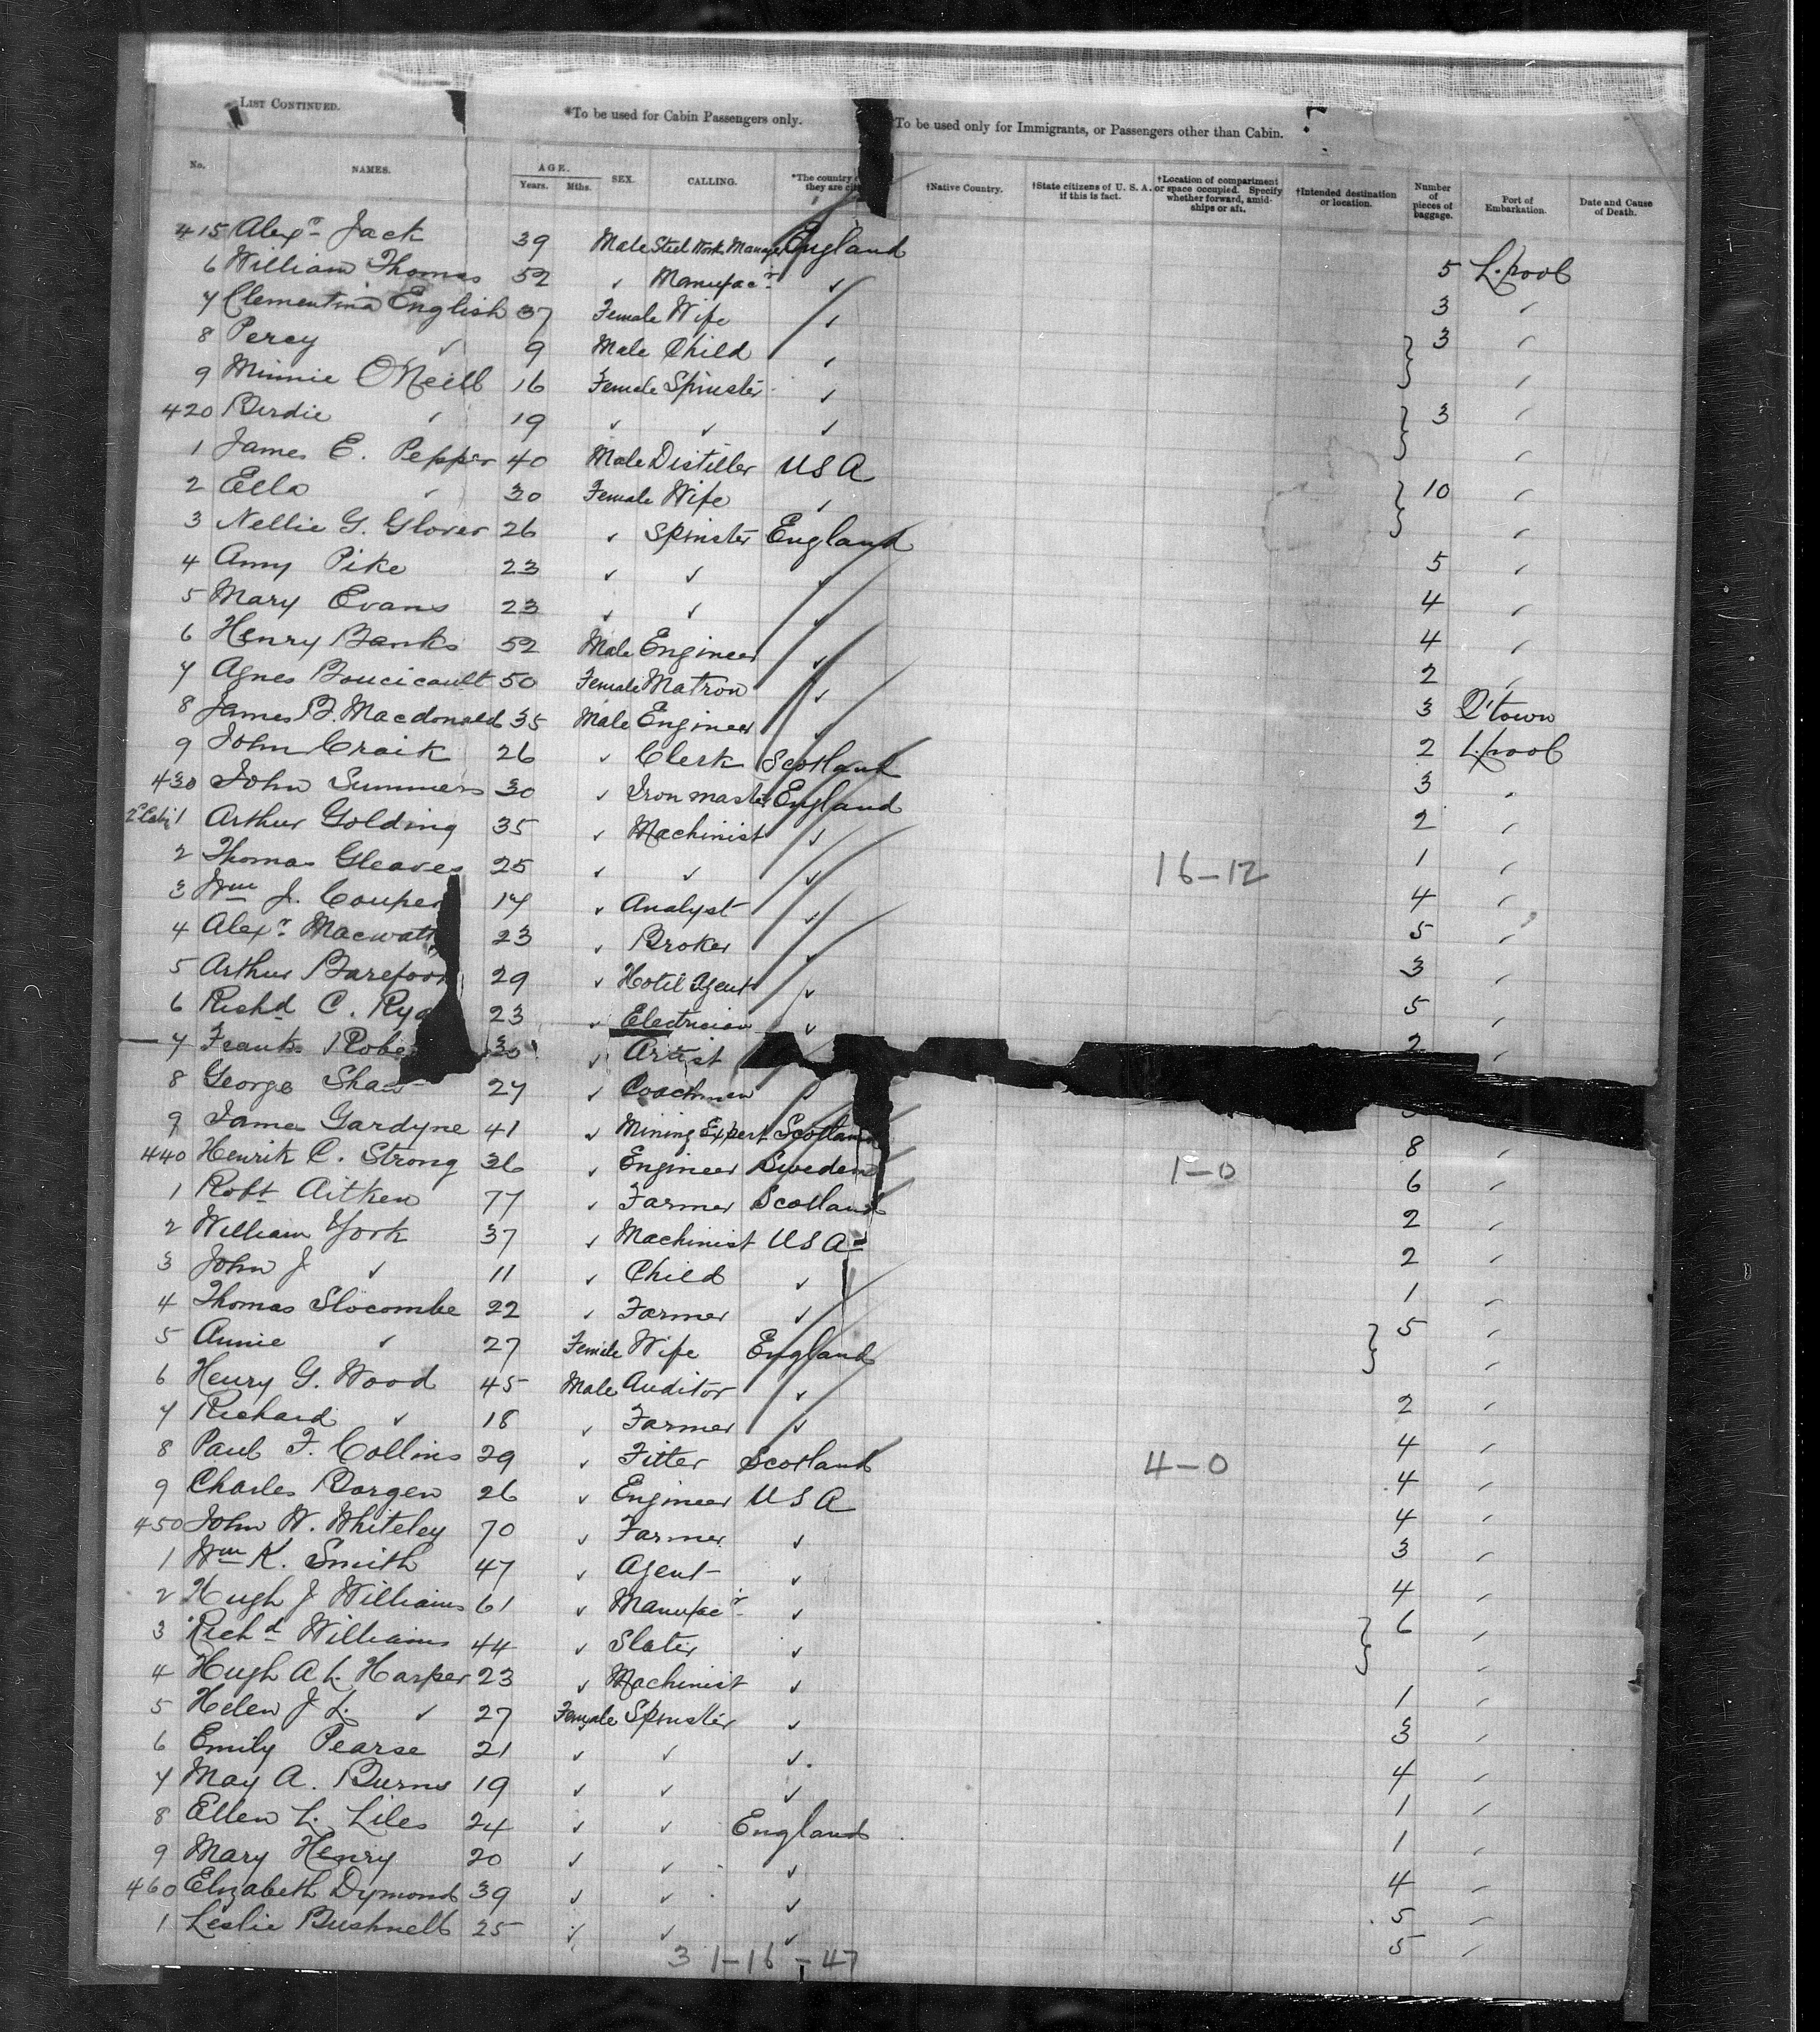 LIST CONTINUED.
*To be used for Cabin Passengers only.
To be used only for Immigrants, or Passengers other than Cabin.
No. NAMES. AGE. Years. Mths. SEX. CALLING. *The country they are †Native Country. †State citizens of U. S. A. if this is fact. †Location of compartment or space occupied. Specify whether forward, amidships or aft. †Intended destination or location. Number of pieces of baggage. Port of Embarkation. Date and Cause of Death.
415 Alexr Jack 39 Male Steel Work Manager England 5 L.pool
6 William Thomas 52 " Manufacr " 3 "
7 Clementina English 37 Female Wife " 3 "
8 Percy " 9 Male Child " "
9 Minnie O'Neill 16 Female Spinster " 3 "
420 Birdie " 19 " " " "
1 James E. Pepper 40 Male Distiller USA 10 "
2 Ella " 30 Female Wife " "
3 Nellie G. Glover 26 " Spinster England 5 "
4 Amy Pike 23 " " " 4 "
5 Mary Evans 23 " " " 4 "
6 Henry Banks 52 Male Engineer " 2 "
7 Agnes Boucicault 50 Female Matron " 3 Q'town
8 James B. Macdonald 35 Male Engineer " 2 L.pool
9 John Craik 26 " Clerk Scotland 3 "
430 John Summers 30 " Iron master England 2 "
1 Arthur Golding 35 " Machinist " 1 "
2 Thomas Gleaves 25 " " " 16-12 4 "
3 Wm J. Couper 17 " Analyst " 5 "
4 Alexr Macwatt 23 " Broker " 3 "
5 Arthur Barefoot 29 " Hotel Agent " 5 "
6 Richd C. 23 " Electrician " 2 "
7 Frank 30 " Artist
8 George Shaw 27 " Coachman "
9 James Gardyne 41 " Mining Expert Scotland 8 "
440 Henrik C. Strong 36 " Engineer Sweden 1-0 6 "
1 Robt Aitken 77 " Farmer Scotland 2 "
2 William York 37 " Machinist USA 2 "
3 John J " 11 " Child " 1 "
4 Thomas Slocombe 22 " Farmer " 5 "
5 Annie " 27 Female Wife England "
6 Henry G. Wood 45 Male Auditor " 2 "
7 Richard " 18 " Farmer " 4 "
8 Paul F. Collins 29 " Fitter Scotland 4-0 4 "
9 Charles Borgen 26 " Engineer USA 4 "
450 John W. Whiteley 70 " Farmer " 3 "
1 Wm K. Smith 47 " Agent " 4 "
2 Hugh J Williams 61 " Manufacr " 6 "
3 Richd Williams 44 " Slater " "
4 Hugh A L. Harper 23 " Machinist " 1 "
5 Helen J L. " 27 Female Spinster " 3 "
6 Emily Pearse 21 " " " 4 "
7 May A. Burns 19 " " " 1 "
8 Ellen L. Liles 24 " " England 1 "
9 Mary Henry 20 " " " 4 "
460 Elizabeth Dymond 39 " " " 5 "
1 Leslie Bushnell 25 " " " 5 "
31-16-47